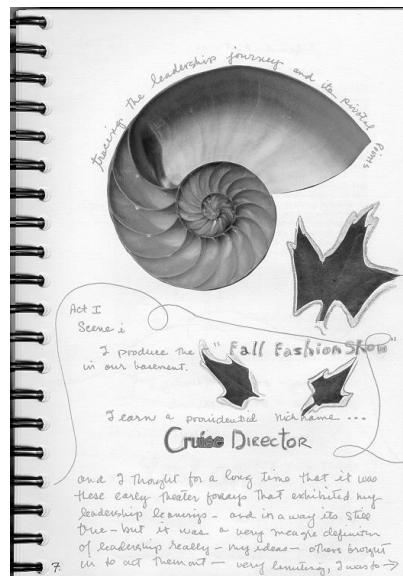 tracing the leadership journey and its pivotal points
Act I
Scene i
I produce the "Fall Fashion Show"
in our basement.
I earn a providential nickname ...
Cruise Director
and I thought for a long time that it was
these early theater forays that exhibited my
leadership leanings - and in a way its still
true - but it was a very meagre definition
of leadership really - my ideas - others brought
in to act them out - very limiting, I was to →
7.